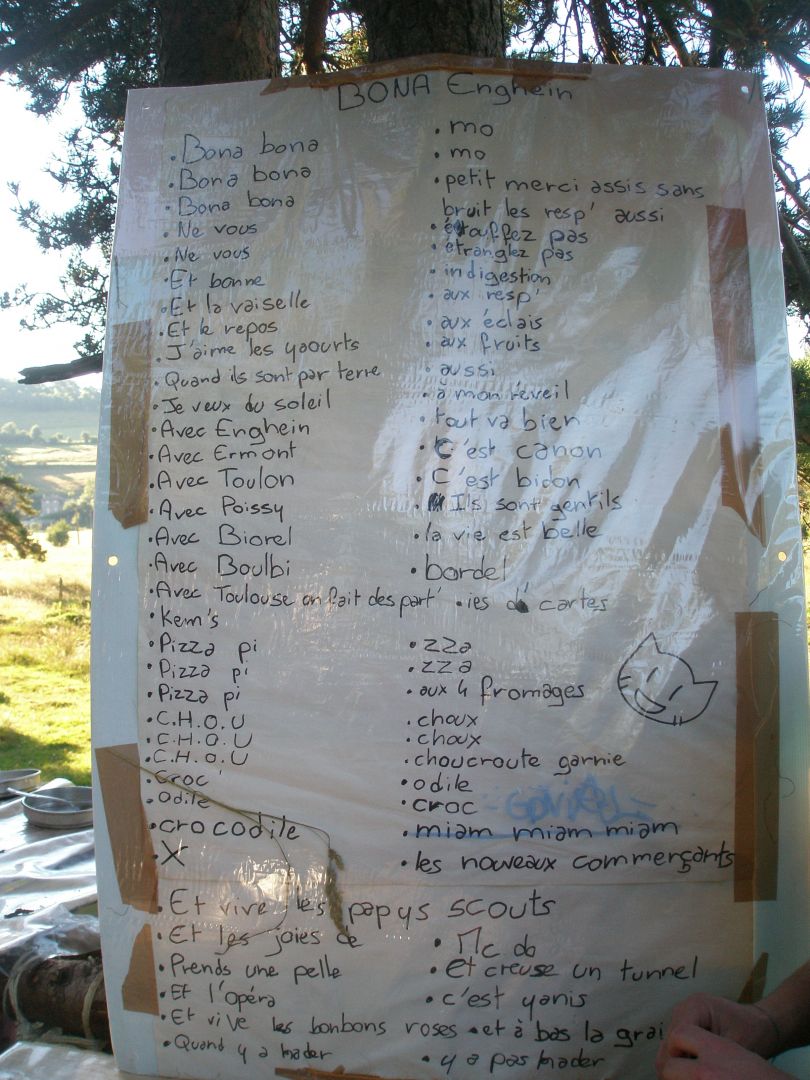 BONA Enghein
. Bona bona . mo
. Bona bona . mo
. Bona bona . petit merci assis sans
bruit les resp' aussi
. Ne vous . étouffez pas
. Ne vous . étranglez pas
. Et bonne . indigestion
. Et la vaiselle . aux resp'
. Et le repos . aux éclais
. J'aime les yaourts . aux fruits
. Quand ils sont par terre . aussi
. Je veux du soleil . à mon réveil
. Avec Enghein . tout va bien
. Avec Ermont . C'est canon
. Avec Toulon . C'est bidon
. Avec Poissy . Ils sont gentils
. Avec Biorel . la vie est belle
. Avec Boulbi . bordel
. Avec Toulouse on fait des part' . ies d' cartes
. Kem's
. Pizza pi . zza
. Pizza pi . zza
. Pizza pi . aux 4 fromages
. C.H.O.U . choux
. C.H.O.U . choux
. C.H.O.U . choucroute garnie
. Croc' . odile
. Odile . croc
. crocodile . miam miam miam
. X . les nouveaux commerçants
. Et vive les papys scouts
. Et les joies de . Mc do
. Prends une pelle . et creuse un tunnel
. Et l'opéra . c'est yanis
. Et vive les bonbons roses . et à bas la grai
. Quand y a mader . y a pas mader